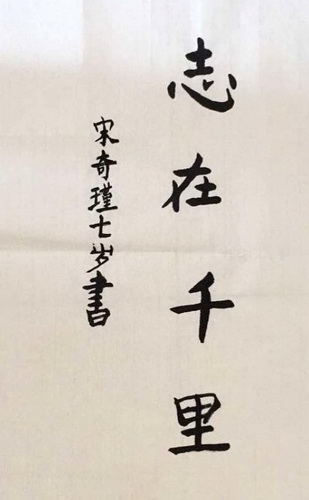 志在千里
宋奇瑾七岁書